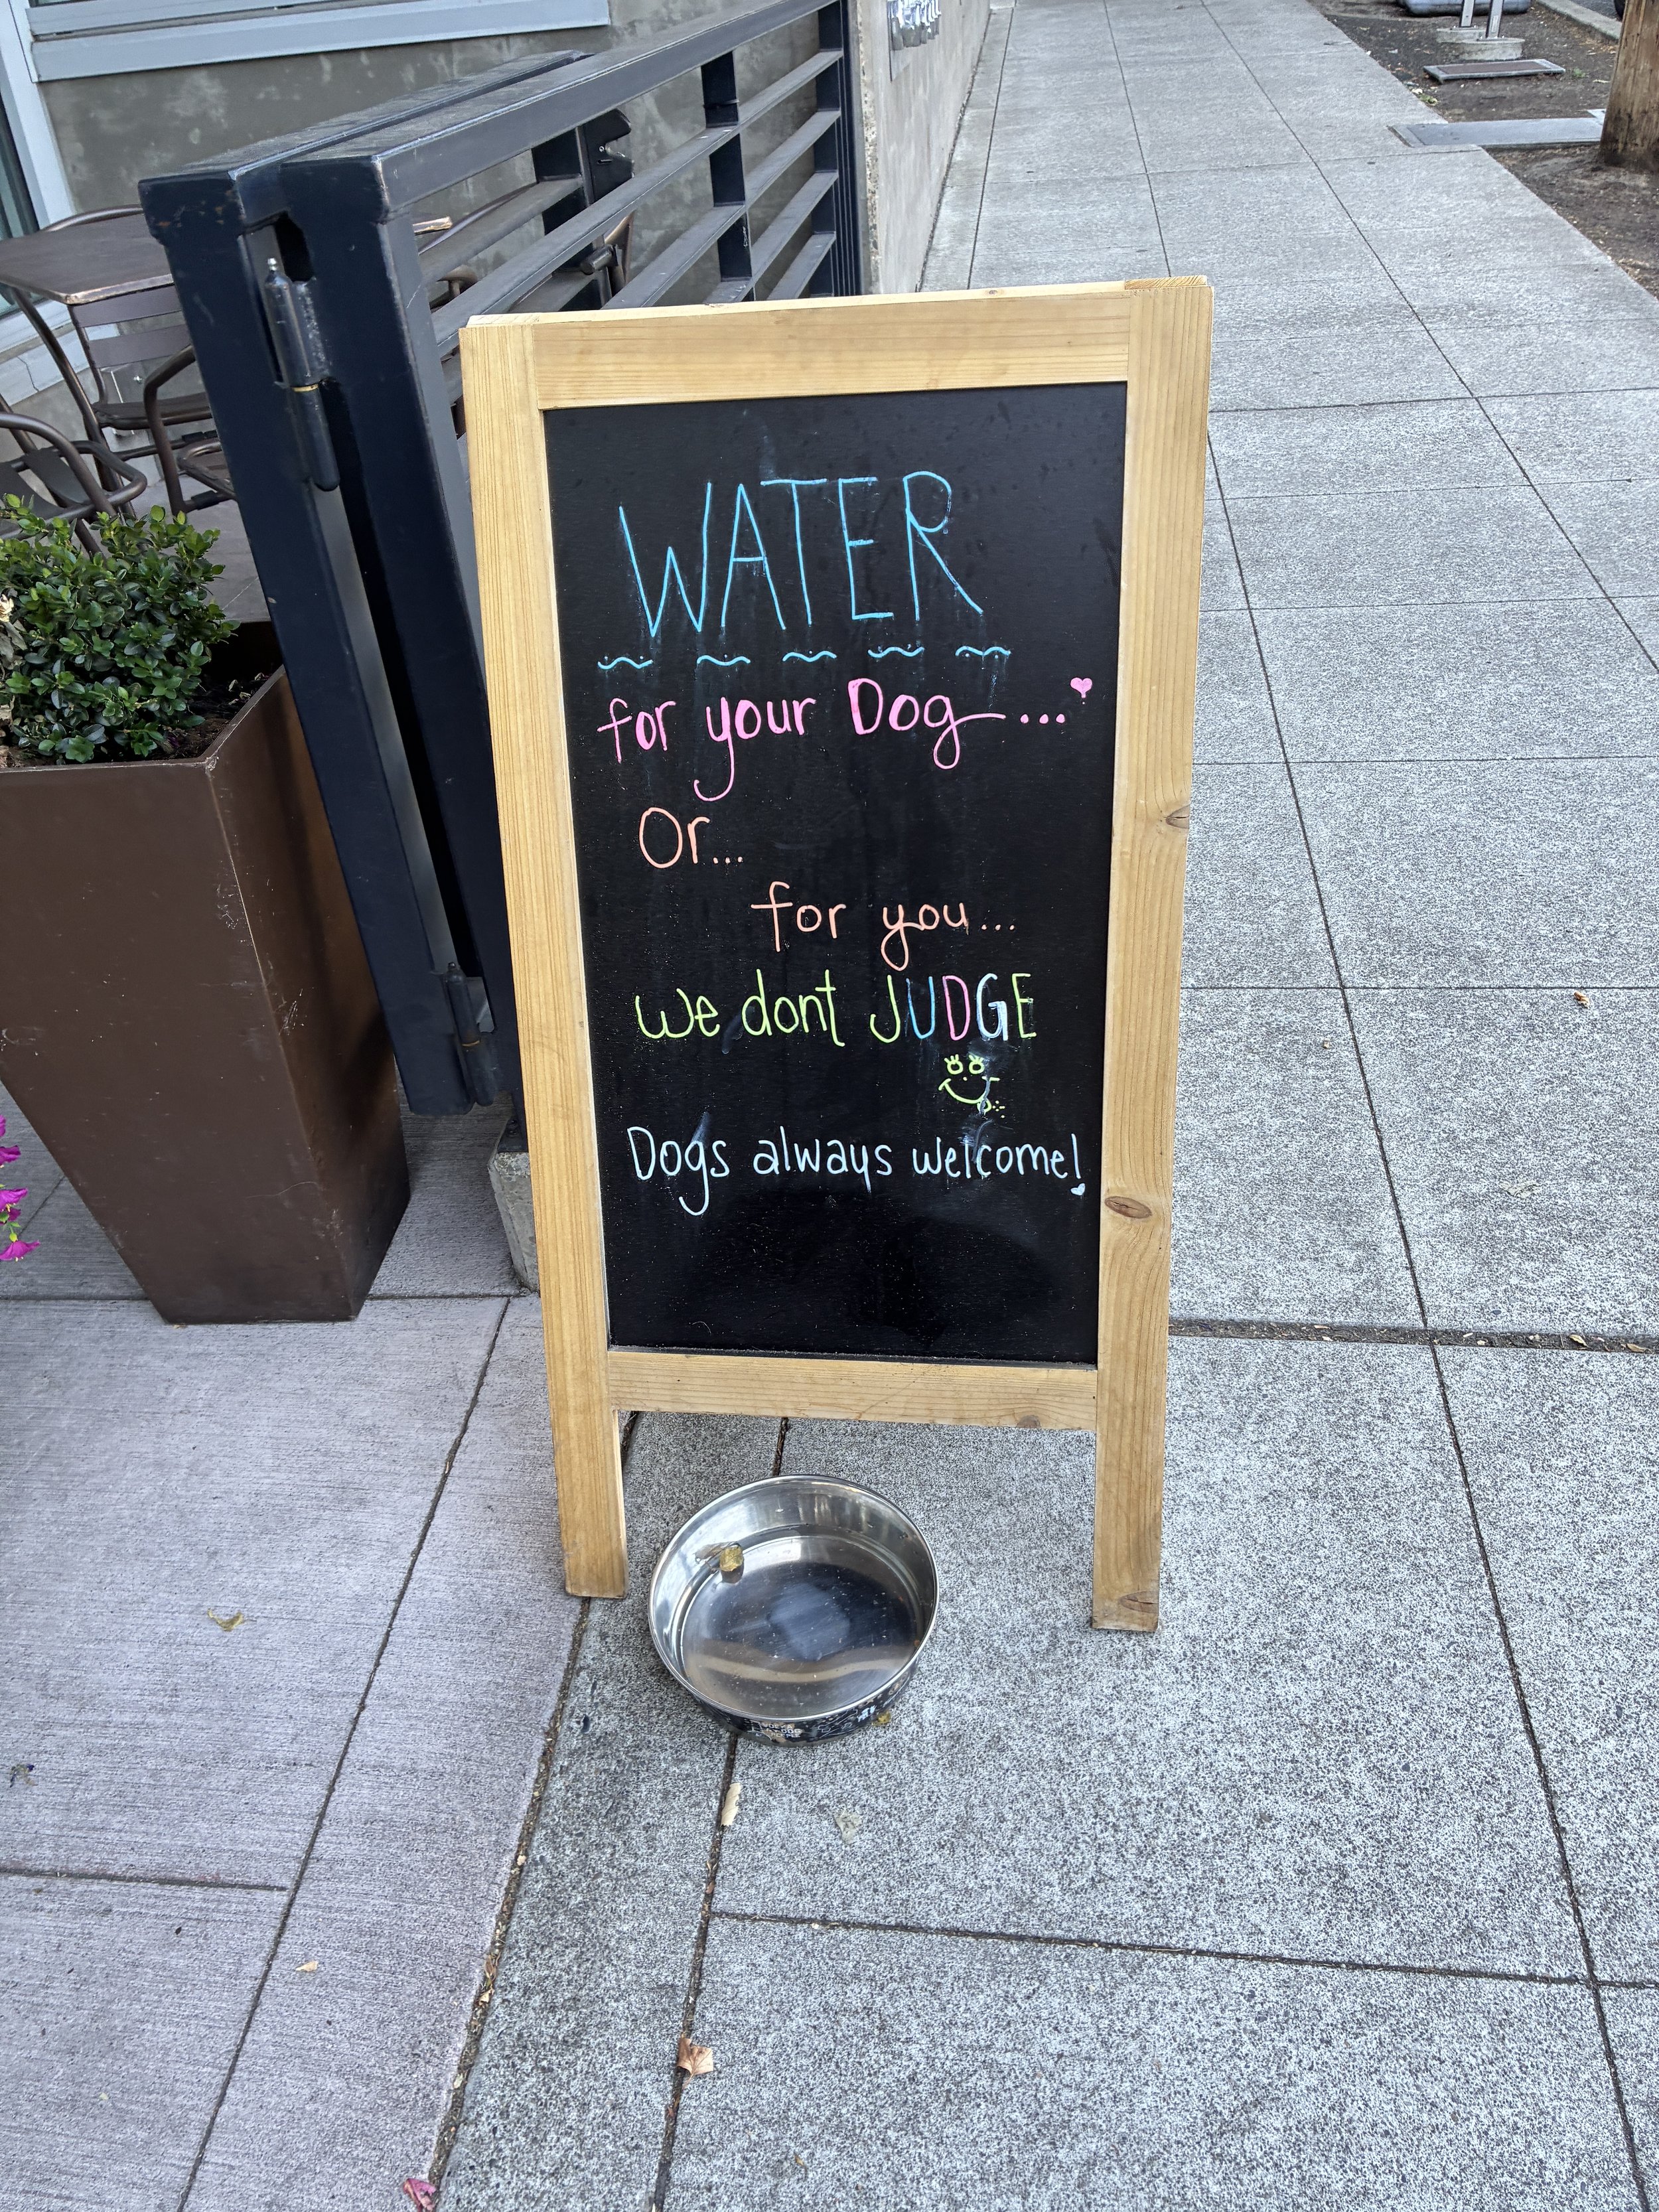 WATER
for your Dog...
Or...
for you...
we dont JUDGE
Dogs always welcome!